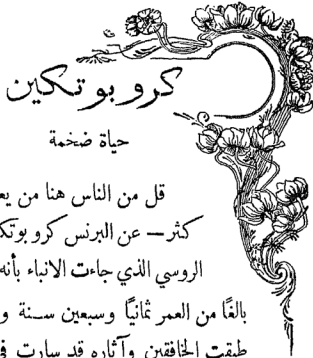 كروبوتكين
حياة ضخمة
قل من الناس هنا من
كثر — عن البرنس
الروسي الذي جاءت الانباء بأنه
بالغًا من العمر ثمانيًا وسبعين سنة
طبقت الخافقين وآثاره قد سارت